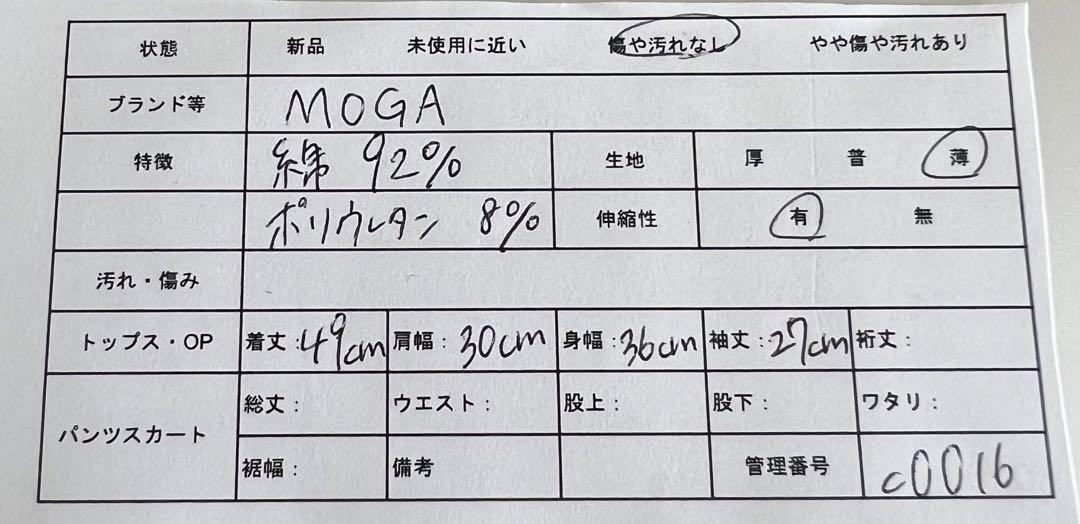 状態 新品 未使用に近い 傷や汚れなし やや傷や汚れあり
ブランド等 MOGA
特徴 綿 92% 生地 厚 普 薄
ポリウレタン 8% 伸縮性 有 無
汚れ・傷み
トップス・OP 着丈:49cm 肩幅:30cm 身幅:36cm 袖丈:27cm 裄丈:
総丈: ウエスト: 股上: 股下: ワタリ:
パンツスカート
裾幅: 備考 管理番号 c0016